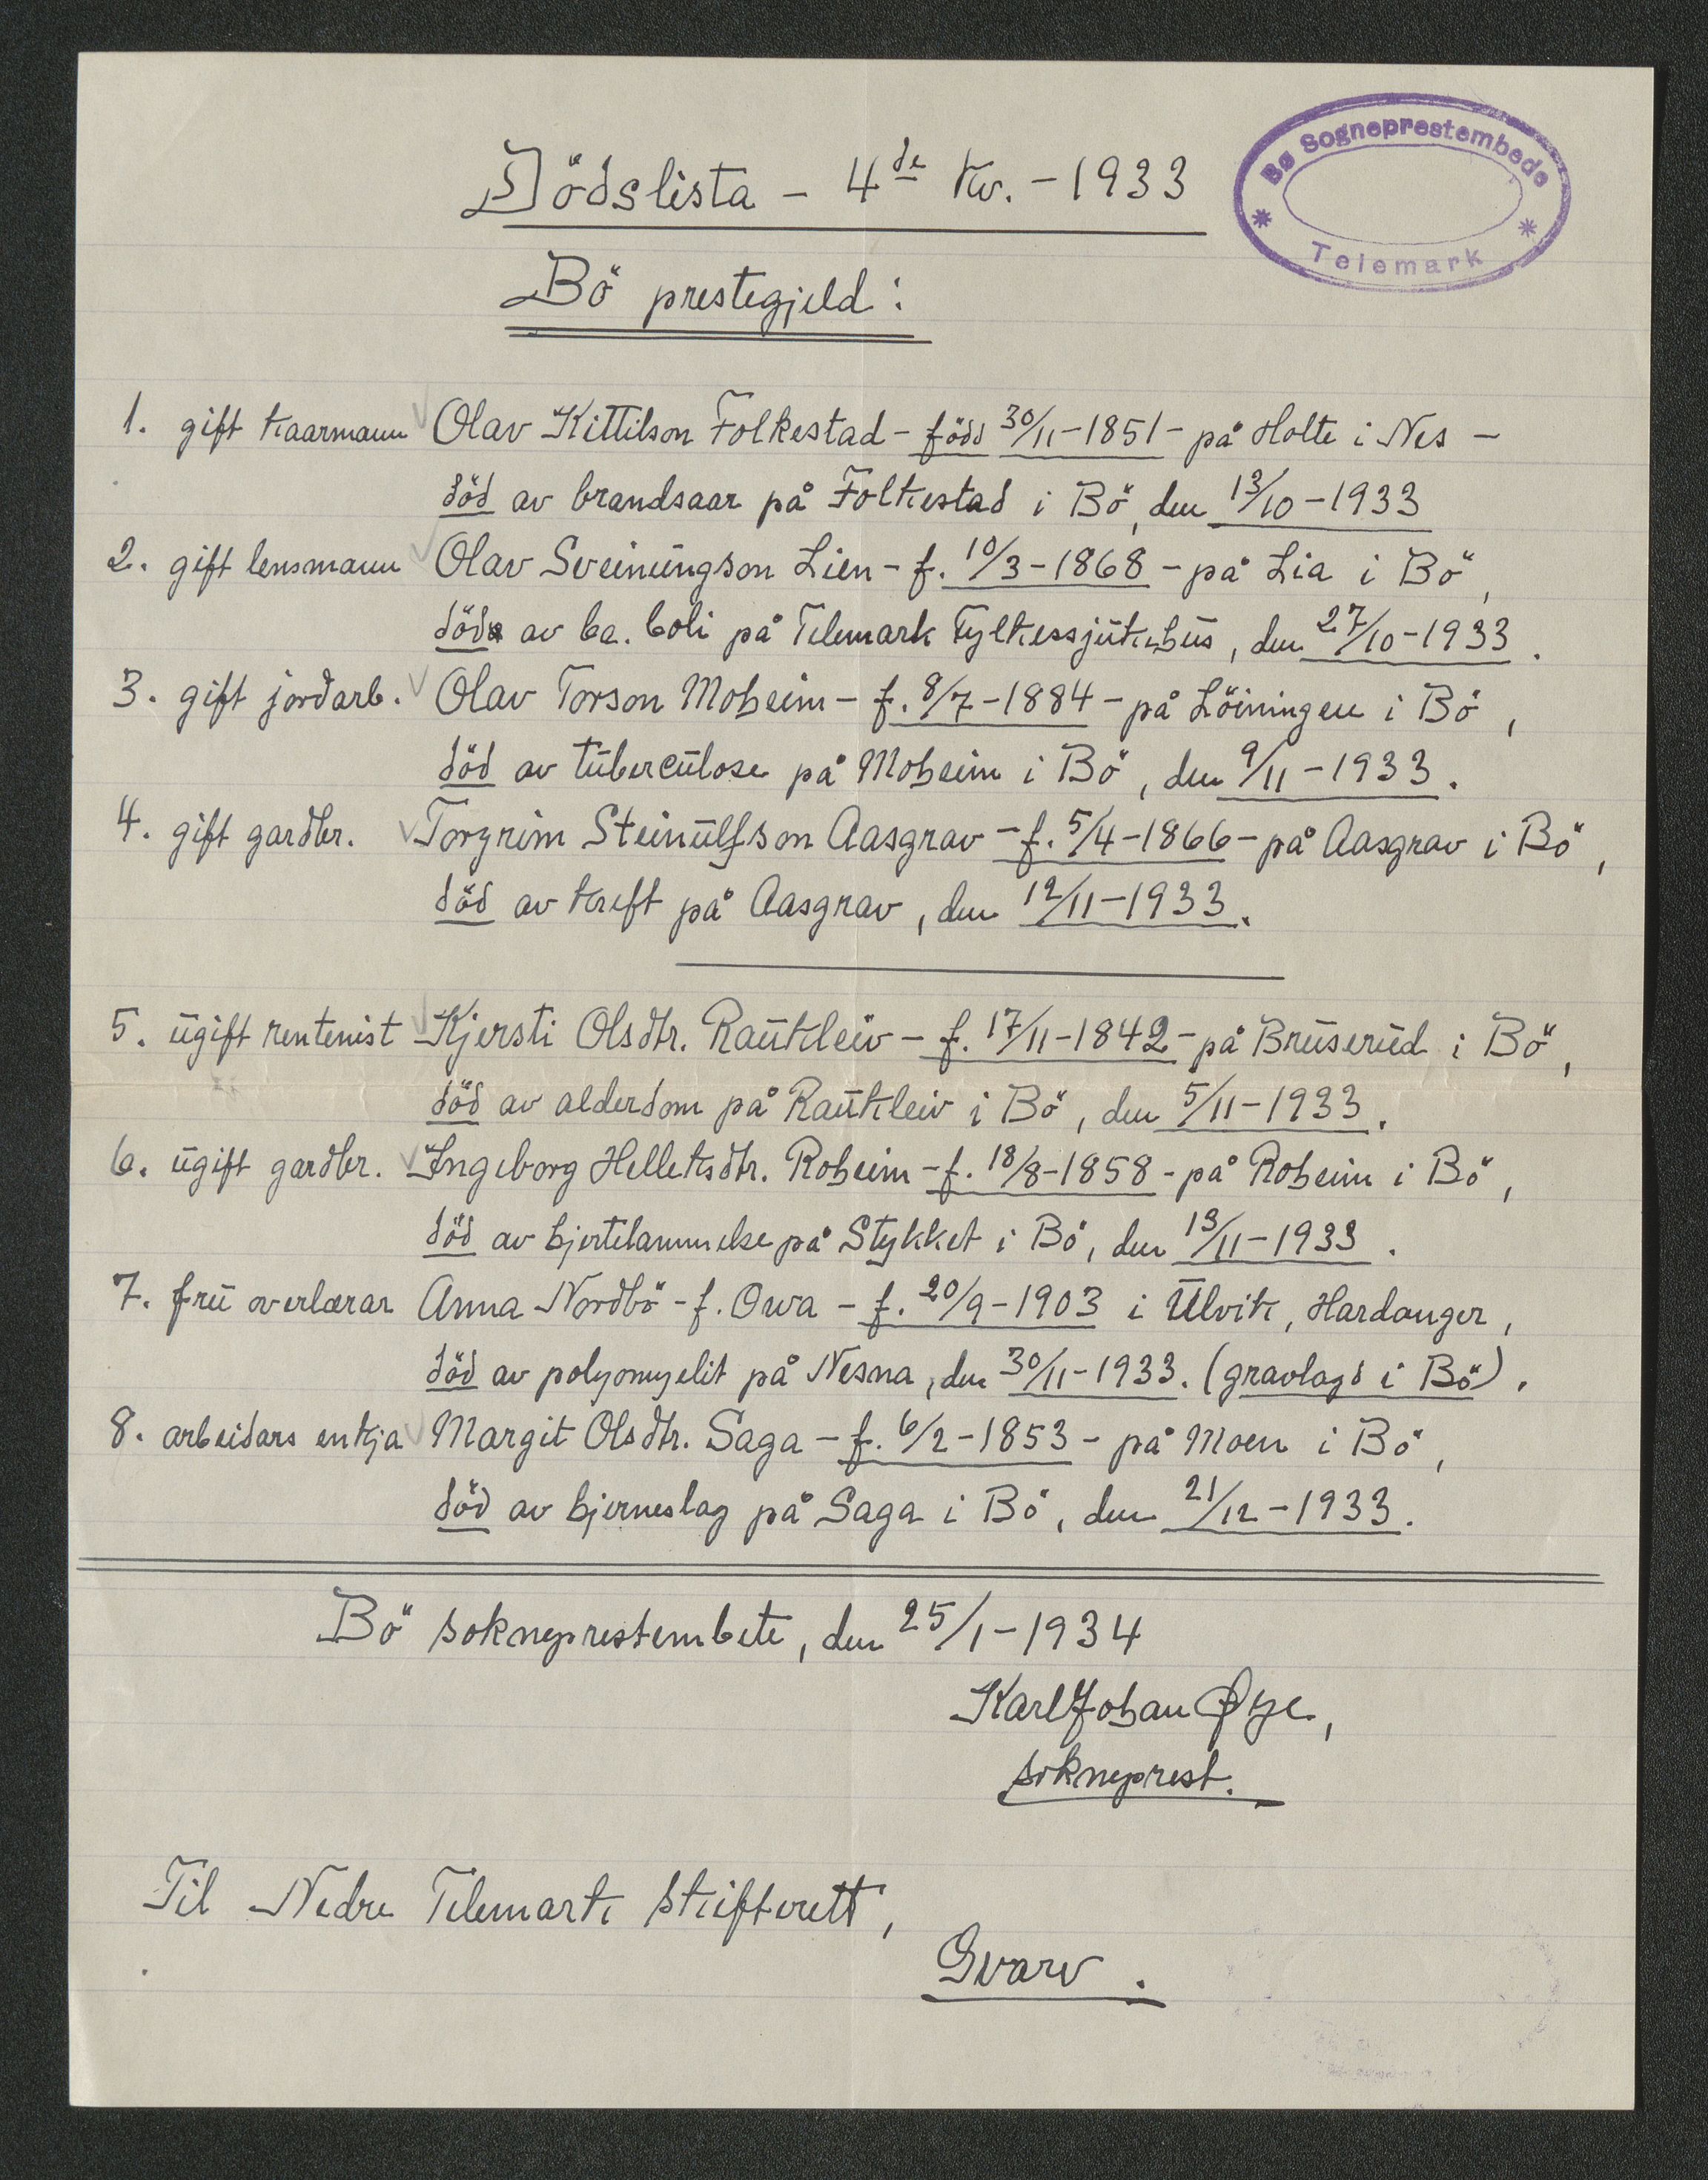 Bø Sogneprestembede
* *
Telemark
Dödslista - 4de kv. - 1933
Bö prestegjeld:
1. gift kaarmann Olav Kittilson Folkestad - född 30/11-1851 - på Holte i Nes -
död av brandsaar på Folkestad i Bö, den 13/10-1933
2. gift lensmann Olav Sveinungson Lien - f. 10/3-1868 - på Lia i Bö,
död av ba. boli på Telemark Fylkessjukehus, den 27/10-1933.
3. gift jordarb. Olav Torson Moheim - f. 8/7-1884 - på Löiningen i Bö,
död av tuberculose på Moheim i Bö, den 9/11-1933.
4. gift gardbr. Torgrim Steinulfson Aasgrav - f. 5/4-1866 - på Aasgrav i Bö,
död av kreft på Aasgrav, den 12/11-1933.
5. ugift rentenist Kjersti Olsdtr. Raukleiv - f. 17/11-1842 - på Bruserud i Bö,
död av alderdom på Raukleiv i Bö, den 5/11-1933.
6. ugift gardbr. Ingeborg Helleksdtr. Roheim - f. 18/8-1858 - på Roheim i Bö,
död av hjertelammelse på Stykket i Bö, den 13/11-1933.
7. fru overlærar Anna Nordbö - f. Owa - f. 20/9-1903 i Ulvik, Hardanger,
död av polyomyelit på Nesna, den 30/11-1933. (gravlagd i Bö).
8. arbeidars enkja Margit Olsdtr. Saga - f. 6/2-1853 - på Moen i Bö,
död av hjerneslag på Saga i Bö, den 21/12-1933.
Bö sokneprestembete, den 25/1-1934
Karl Johan Øye,
sokneprest.
Til Nedre Telemark skifterett,
Gvarv.